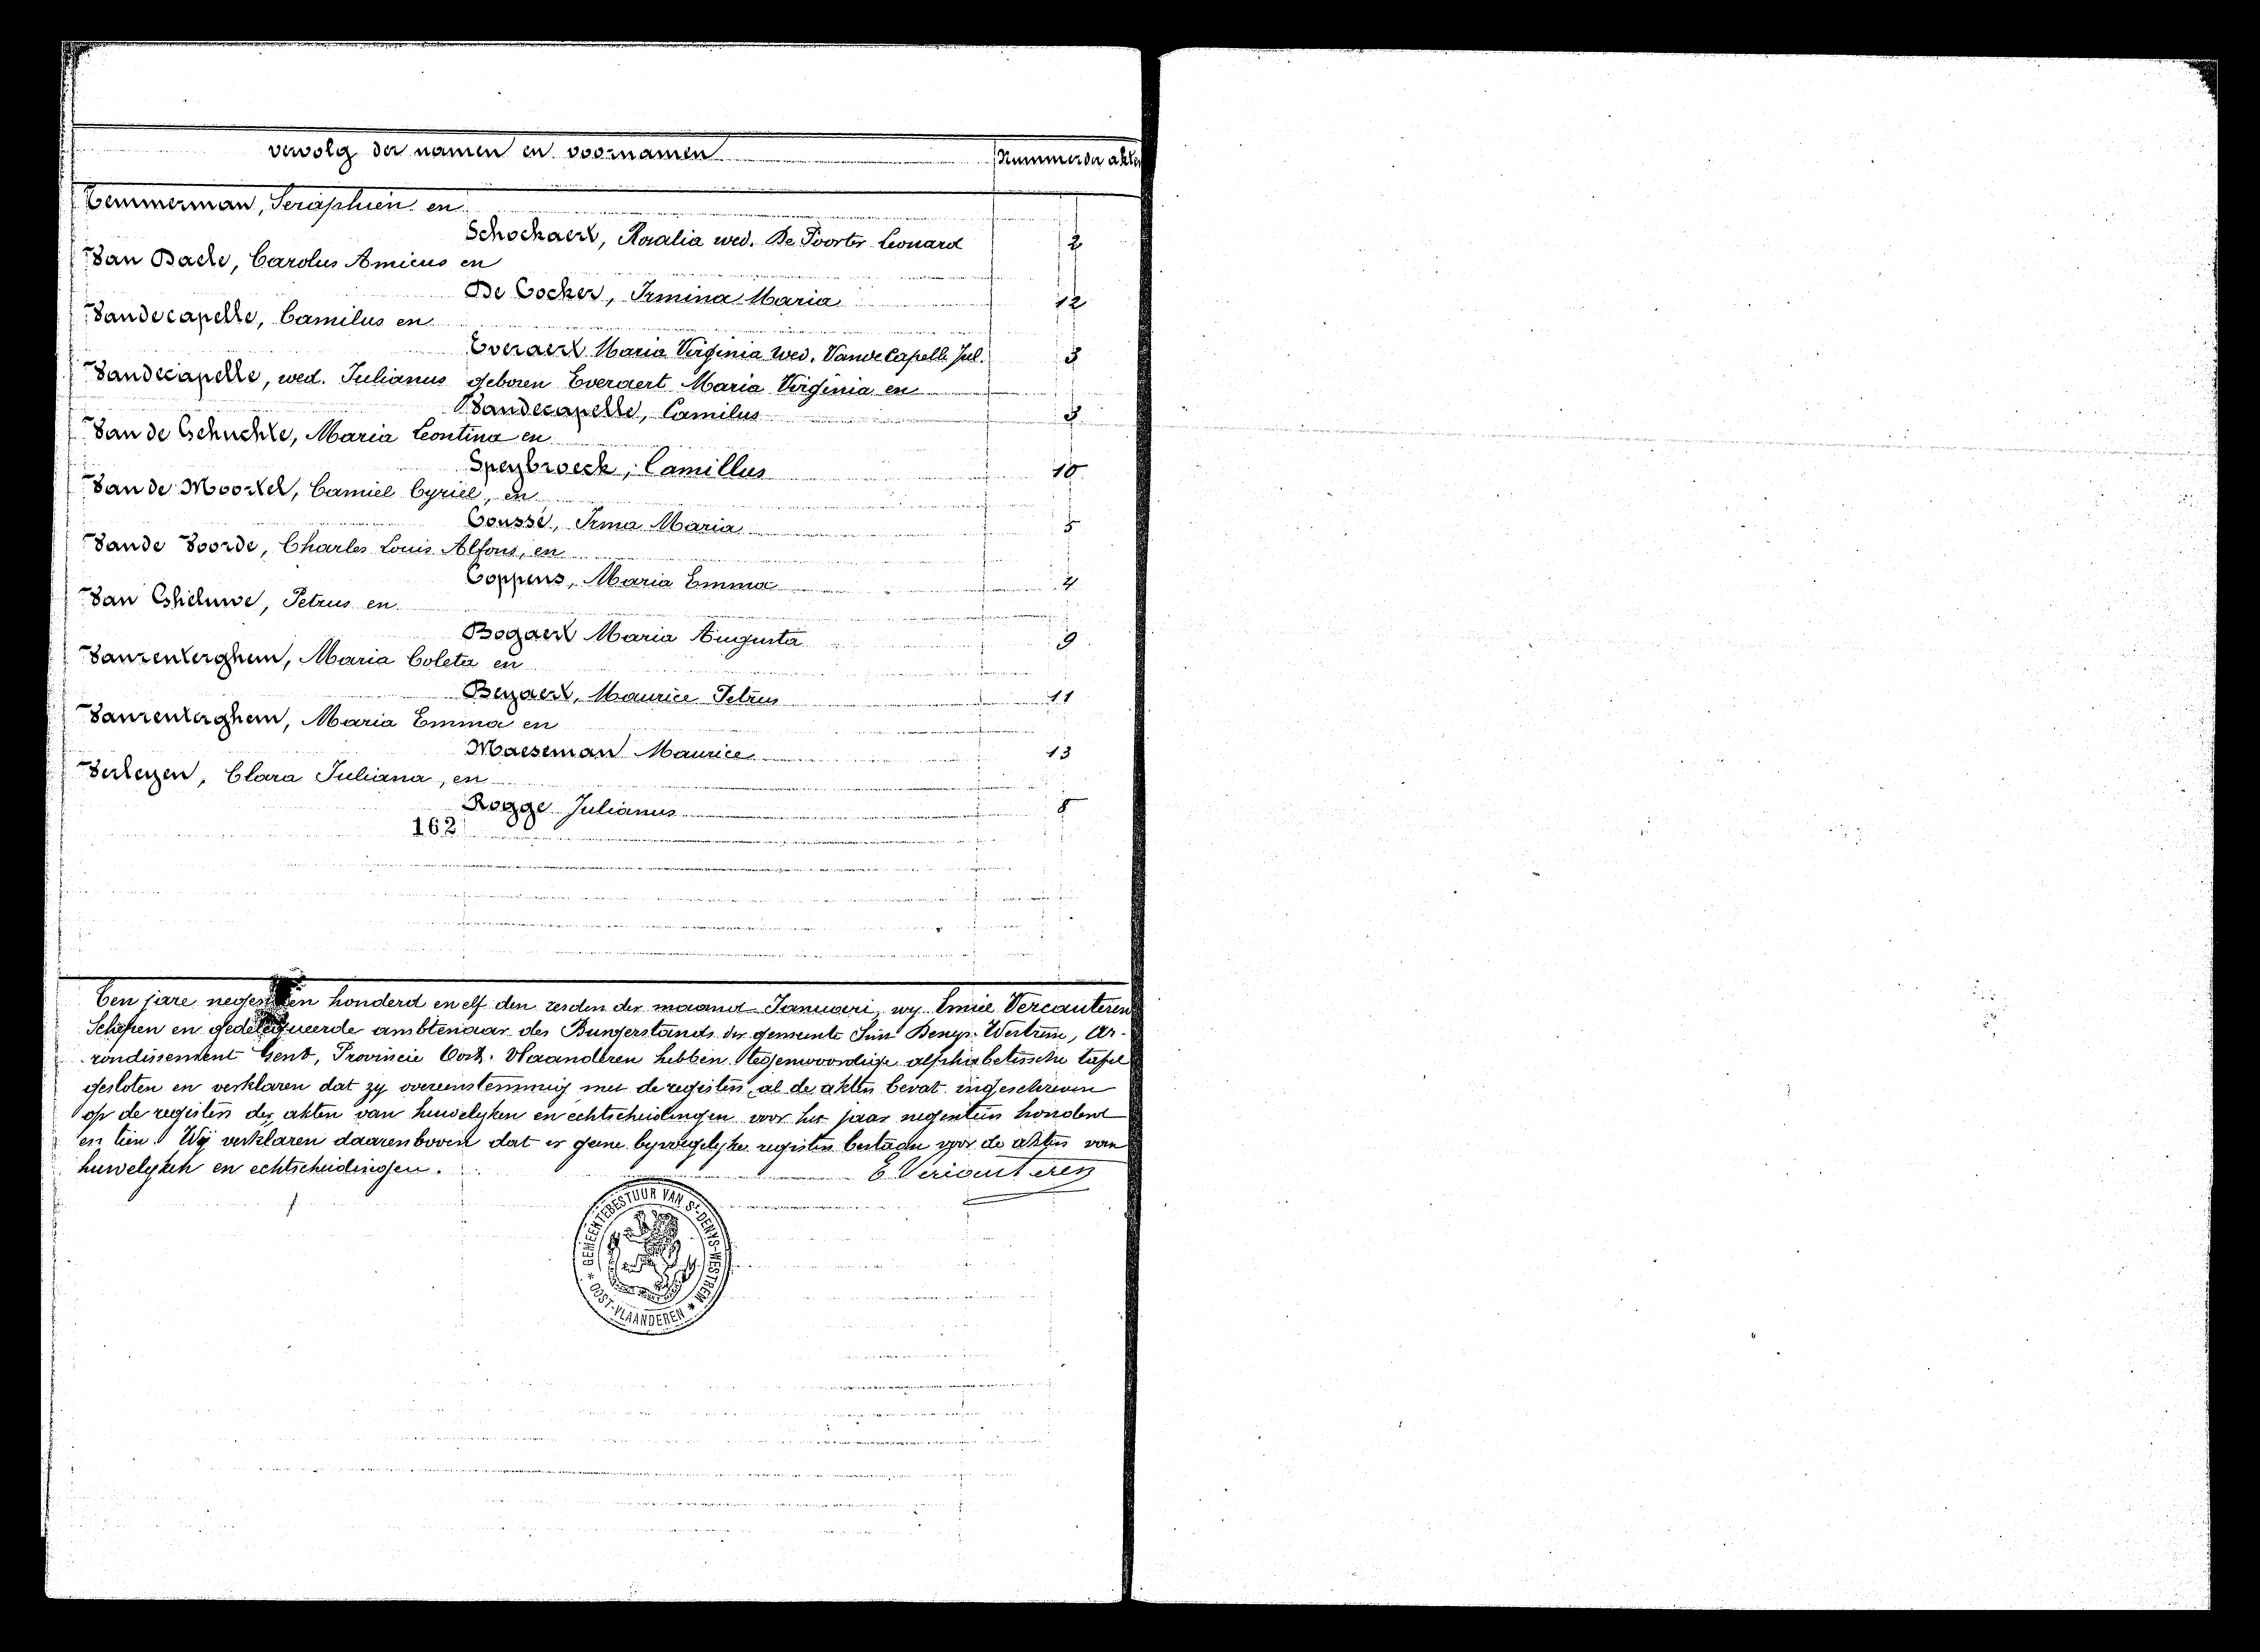 vervolg der namen en voornamen Nummer der akten
Temmerman, Seraphien en
Schockaert, Rosalia wed. De Poorter Leonard 2
Van Daele, Carolus Amicus en
De Cocker, Irmina Maria 12
Vandecapelle, Camilus en
Everaert Maria Virginia wed. Vandecapelle Jul. 3
Vandecapelle, wed. Julianus geboren Everaert Maria Virginia en
Vandecapelle, Camilus 3
Van de Gehuchte, Maria Leontina en
Speybroeck, Camillus 10
Van de Moortel, Camiel Cyriel, en
Coussé, Irma Maria 5
Vande Voorde, Charles Louis Alfons, en
Coppens, Maria Emma 4
Van , Petrus en
Bogaert Maria Augusta 9
Vanrenterghem, Maria Coleta en
Beyaert, Maurice Petrus 11
Vanrenterghem, Maria Emma en
Maeseman Maurice 13
Verleyen, Clara Juliana, en
Rogge Julianus 8
162
Ten jare negentien honderd en elf den der maand Januari, wy Emiel Vercauteren
Schepen en gedelegueerde ambtenaar des Burgerstands der gemeente Sint Denys-Westrem, Ar-
rondissement Gent, Provincie Oost-Vlaanderen hebben tegenwoordige alphabetische tafel
gesloten en verklaren dat zy overeenstemmig met de registers, al de akten bevat ingeschreven
op de registers der akten van huwelyken en echtscheidingen voor het jaar negentien honderd
en tien. Wij verklaren daarenboven dat er geene byvoegelyke registers bestaan voor de akten van
huwelyken en echtscheidingen.
E Vercauteren
GEMEENTEBESTUUR VAN ST-DENYS-WESTREM
* OOST-VLAANDEREN *